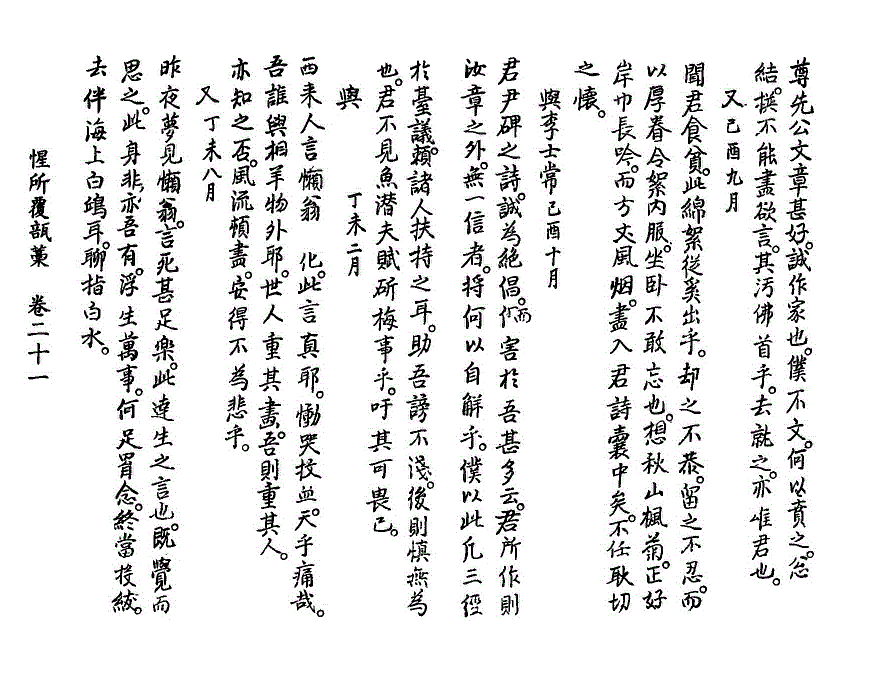 尊先公文章甚好。誠作家也。僕不文。何以賁之。忩
結撰不能盡欲言。其汚佛首乎。去就之。亦唯君也。
又 己酉九月
聞君食貧。此綿絮從奚出乎。却之不恭。留之不忍。而
以厚眷令絮內服。坐臥不敢忘也。想秋山楓菊。正好
岸巾長吟。而方丈風烟。盡入君詩囊中矣。不任耿切
之懷。
與李士常 己酉十月
君尹碑之詩。誠為絶倡。而 害於吾甚多云。君所作則
汝章之外。無一信者。將何以自解乎。僕以此凡三經
於臺議。賴諸人扶持之耳。助吾謗不淺。後則愼無為
也。君不見魚潛夫賦斫梅事乎。吁其可畏已。
與 丁未二月
西來人言懶翁 化。此言真耶。慟哭抆血。天乎痛哉。
吾誰與相羊物外耶。世人重其畵。吾則重其人。
亦知之否。風流頓盡。安得不為悲乎。
又 丁未八月
昨夜夢見懶翁。言死甚足樂。此達生之言也。既覺而
思之。此身非亦吾有。浮生萬事。何足罥念。終當投紱。
去伴海上白鷗耳。聊指白水。
惺所覆瓿藁 卷二十一